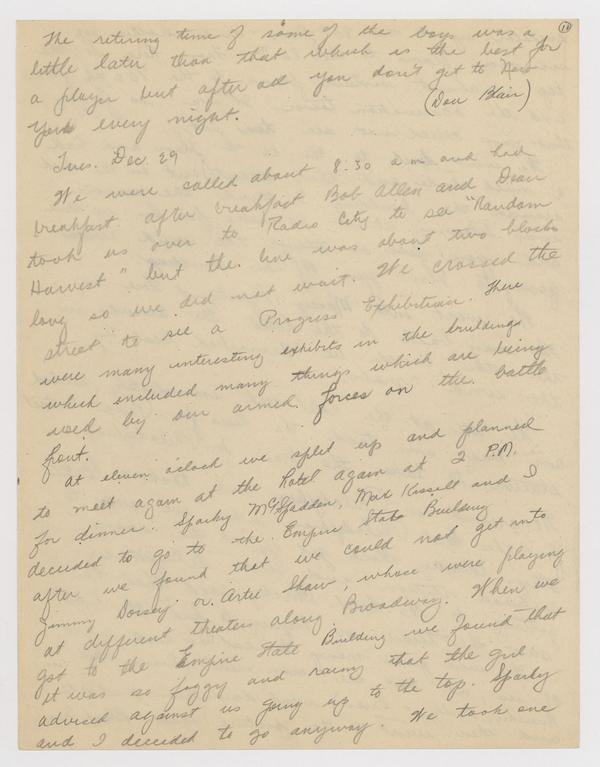 10
The retiring time of some of the boys was a
little later than that which is the best for
a player but after all you don't get to New
York every night. (Don Blair)
Tues. Dec. 29
We were called about 8:30 a m and had
breakfast. After breakfast Bob Allen and Dean
took us over to Radio City to see "Random
Harvest" but the line was about two blocks
long so we did not wait. We crossed the
street to see a Progress Exhibition. There
were many interesting exhibits in the buildings
which included many things which are being
used by our armed forces on the battle
front.
At eleven o'clock we split up and planned
to meet again at the hotel again at 2 P.M.
for dinner. Sparky McSpadden, Max Kissell and I
decided to go to the Empire State Building
after we found that we could not get into
Jimmy Dorsey or Artie Shaw, whose were playing
at different theaters along Broadway. When we
got to the Empire State Building we found that
it was so foggy and rainy that the girl
advised against us going up to the top. Sparky
and I decided to go anyway. We took one